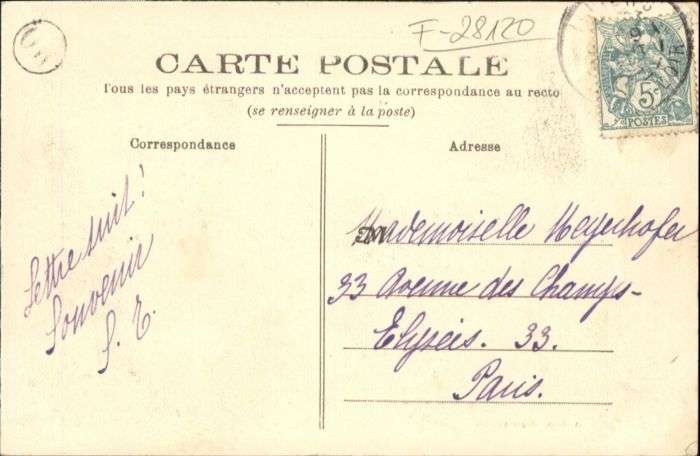 F-28120
CARTE POSTALE
Tous les pays étrangers n'acceptent pas la correspondance au recto
(se renseigner à la poste)
Correspondance
Adresse
Lettre suit!
Souvenir
S. E.
Mademoiselle Meyerhofer
33 Avenue des Champs-
Elyseis. 33.
Paris.
5c
POSTES